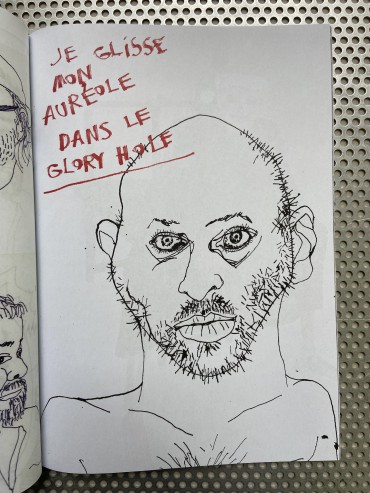 JE GLISSE
MON
AURÉOLE
DANS LE
GLORY HOLE